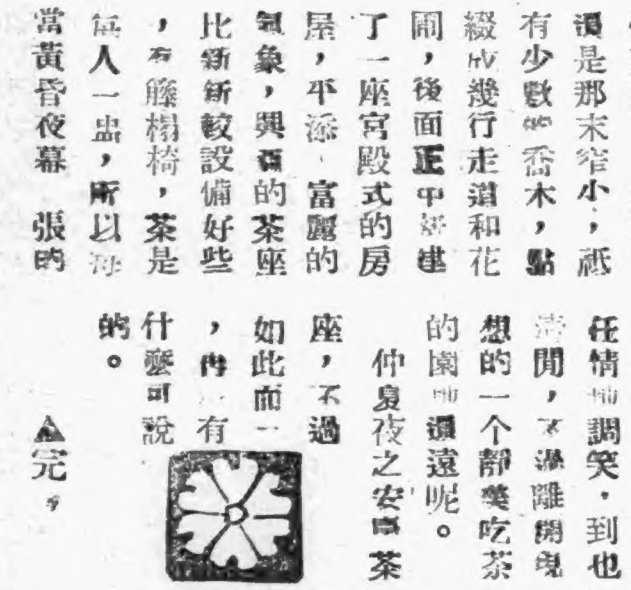 還是那末窄小，祇
有少數的喬木，點
綴成幾行走道和花
圃，後面正中新建
了一座宮殿式的房
屋，平添富麗的
氣象，興的茶座
比新新較設備好些
，有籐榻椅，茶是
每人一盅，所以每
當黃昏夜幕張的
任情地調笑，到也
清閒，不過離開
想的一个靜美吃茶
的園地還遠呢。
仲夏夜之安茶
座，不過
如此而
，有
什麼可說
的。
▲完